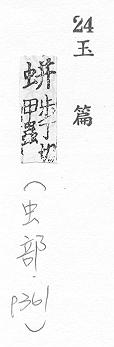 24
玉篇
蛢 步丁切
甲蟲
(虫部.p361)